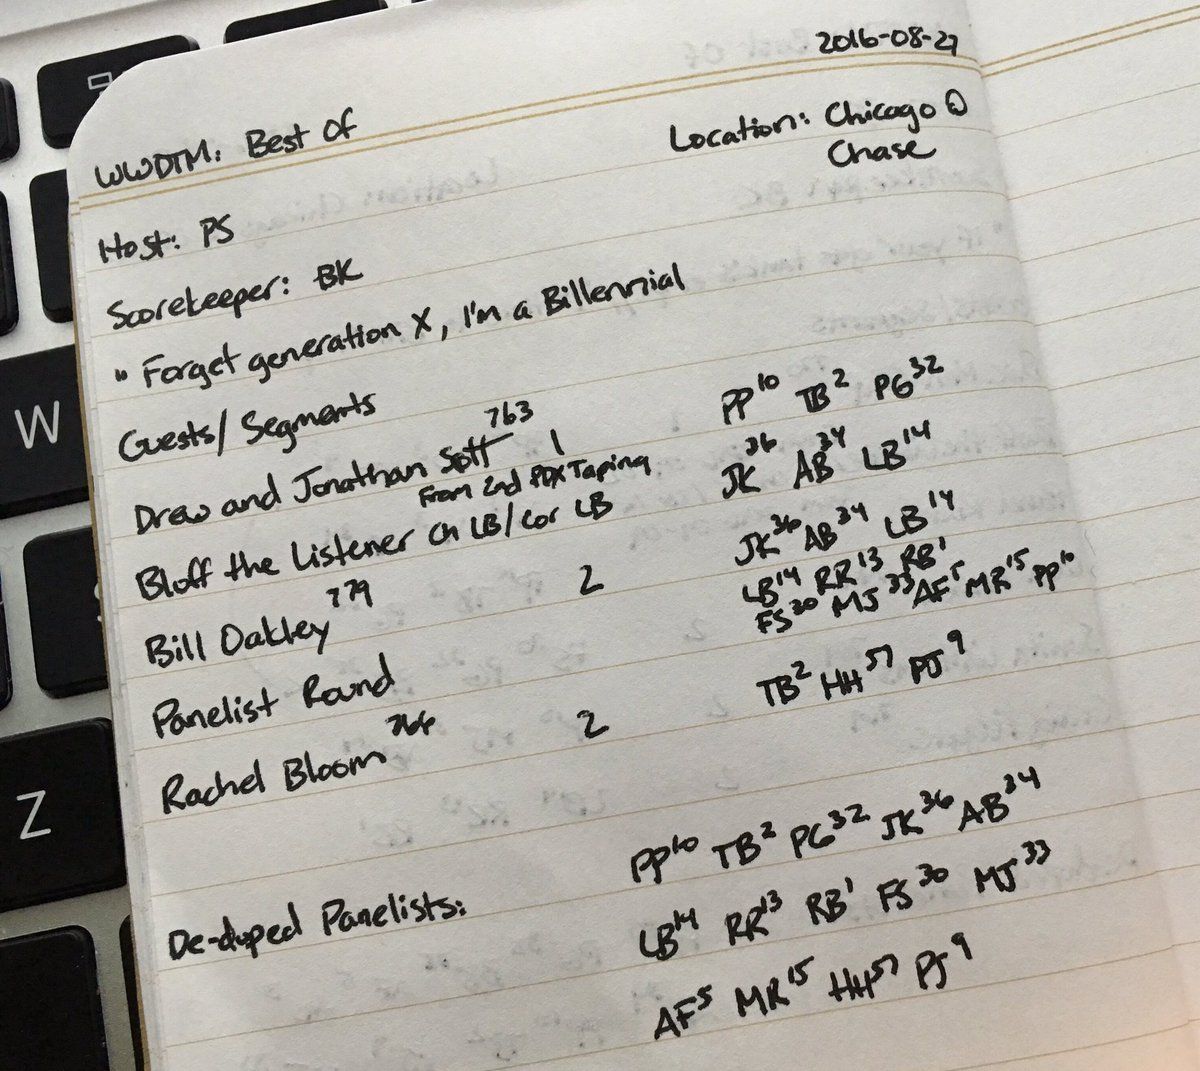 2016-08-27
WWDTM: Best Of
Location: Chicago @
Chase
Host: PS
Scorekeeper: BK
" Forget generation X, I'm a Billennial
Guests/Segments
PP10 TB2 PG32
Drew and Jonathan Scott 763 1
From 2nd PDX Taping
JK36 AB34 LB14
Bluff the Listener Ch LB/Cor LB
JK36 AB34 LB14
Bill Oakley 779 2
LB14 RR13 RB1
FS30 MJ33 AF5 MR15 PP10
Panelist Round
TB2 HH57 PJ9
Rachel Bloom 766 2
De-duped Panelists:
PP10 TB2 PG32 JK36 AB34
LB14 RR13 RB1 FS30 MJ33
AF5 MR15 HH57 PJ9
W
Z